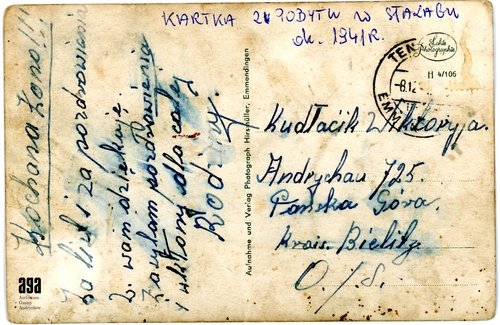 KARTKA Z POBYTU W STALAGU
ok. 1941R.
Kochana Żono!!!
Za list i za pozdrowienia
wam dziękuję.
Zasyłam pozdrowienia
i ukłony dla całej
Rodziny.
Aufnahme und Verlag Photograph Hirsmüller, Emmendingen
TEN
8.12
EMM
Echte Photographie
H 4/106
Kudłacik Wiktoryja.
Andrychau 725.
Pańska Góra.
Krais. Bielitz
O./S.
aga
Archiwum
Gminy
Andrychów